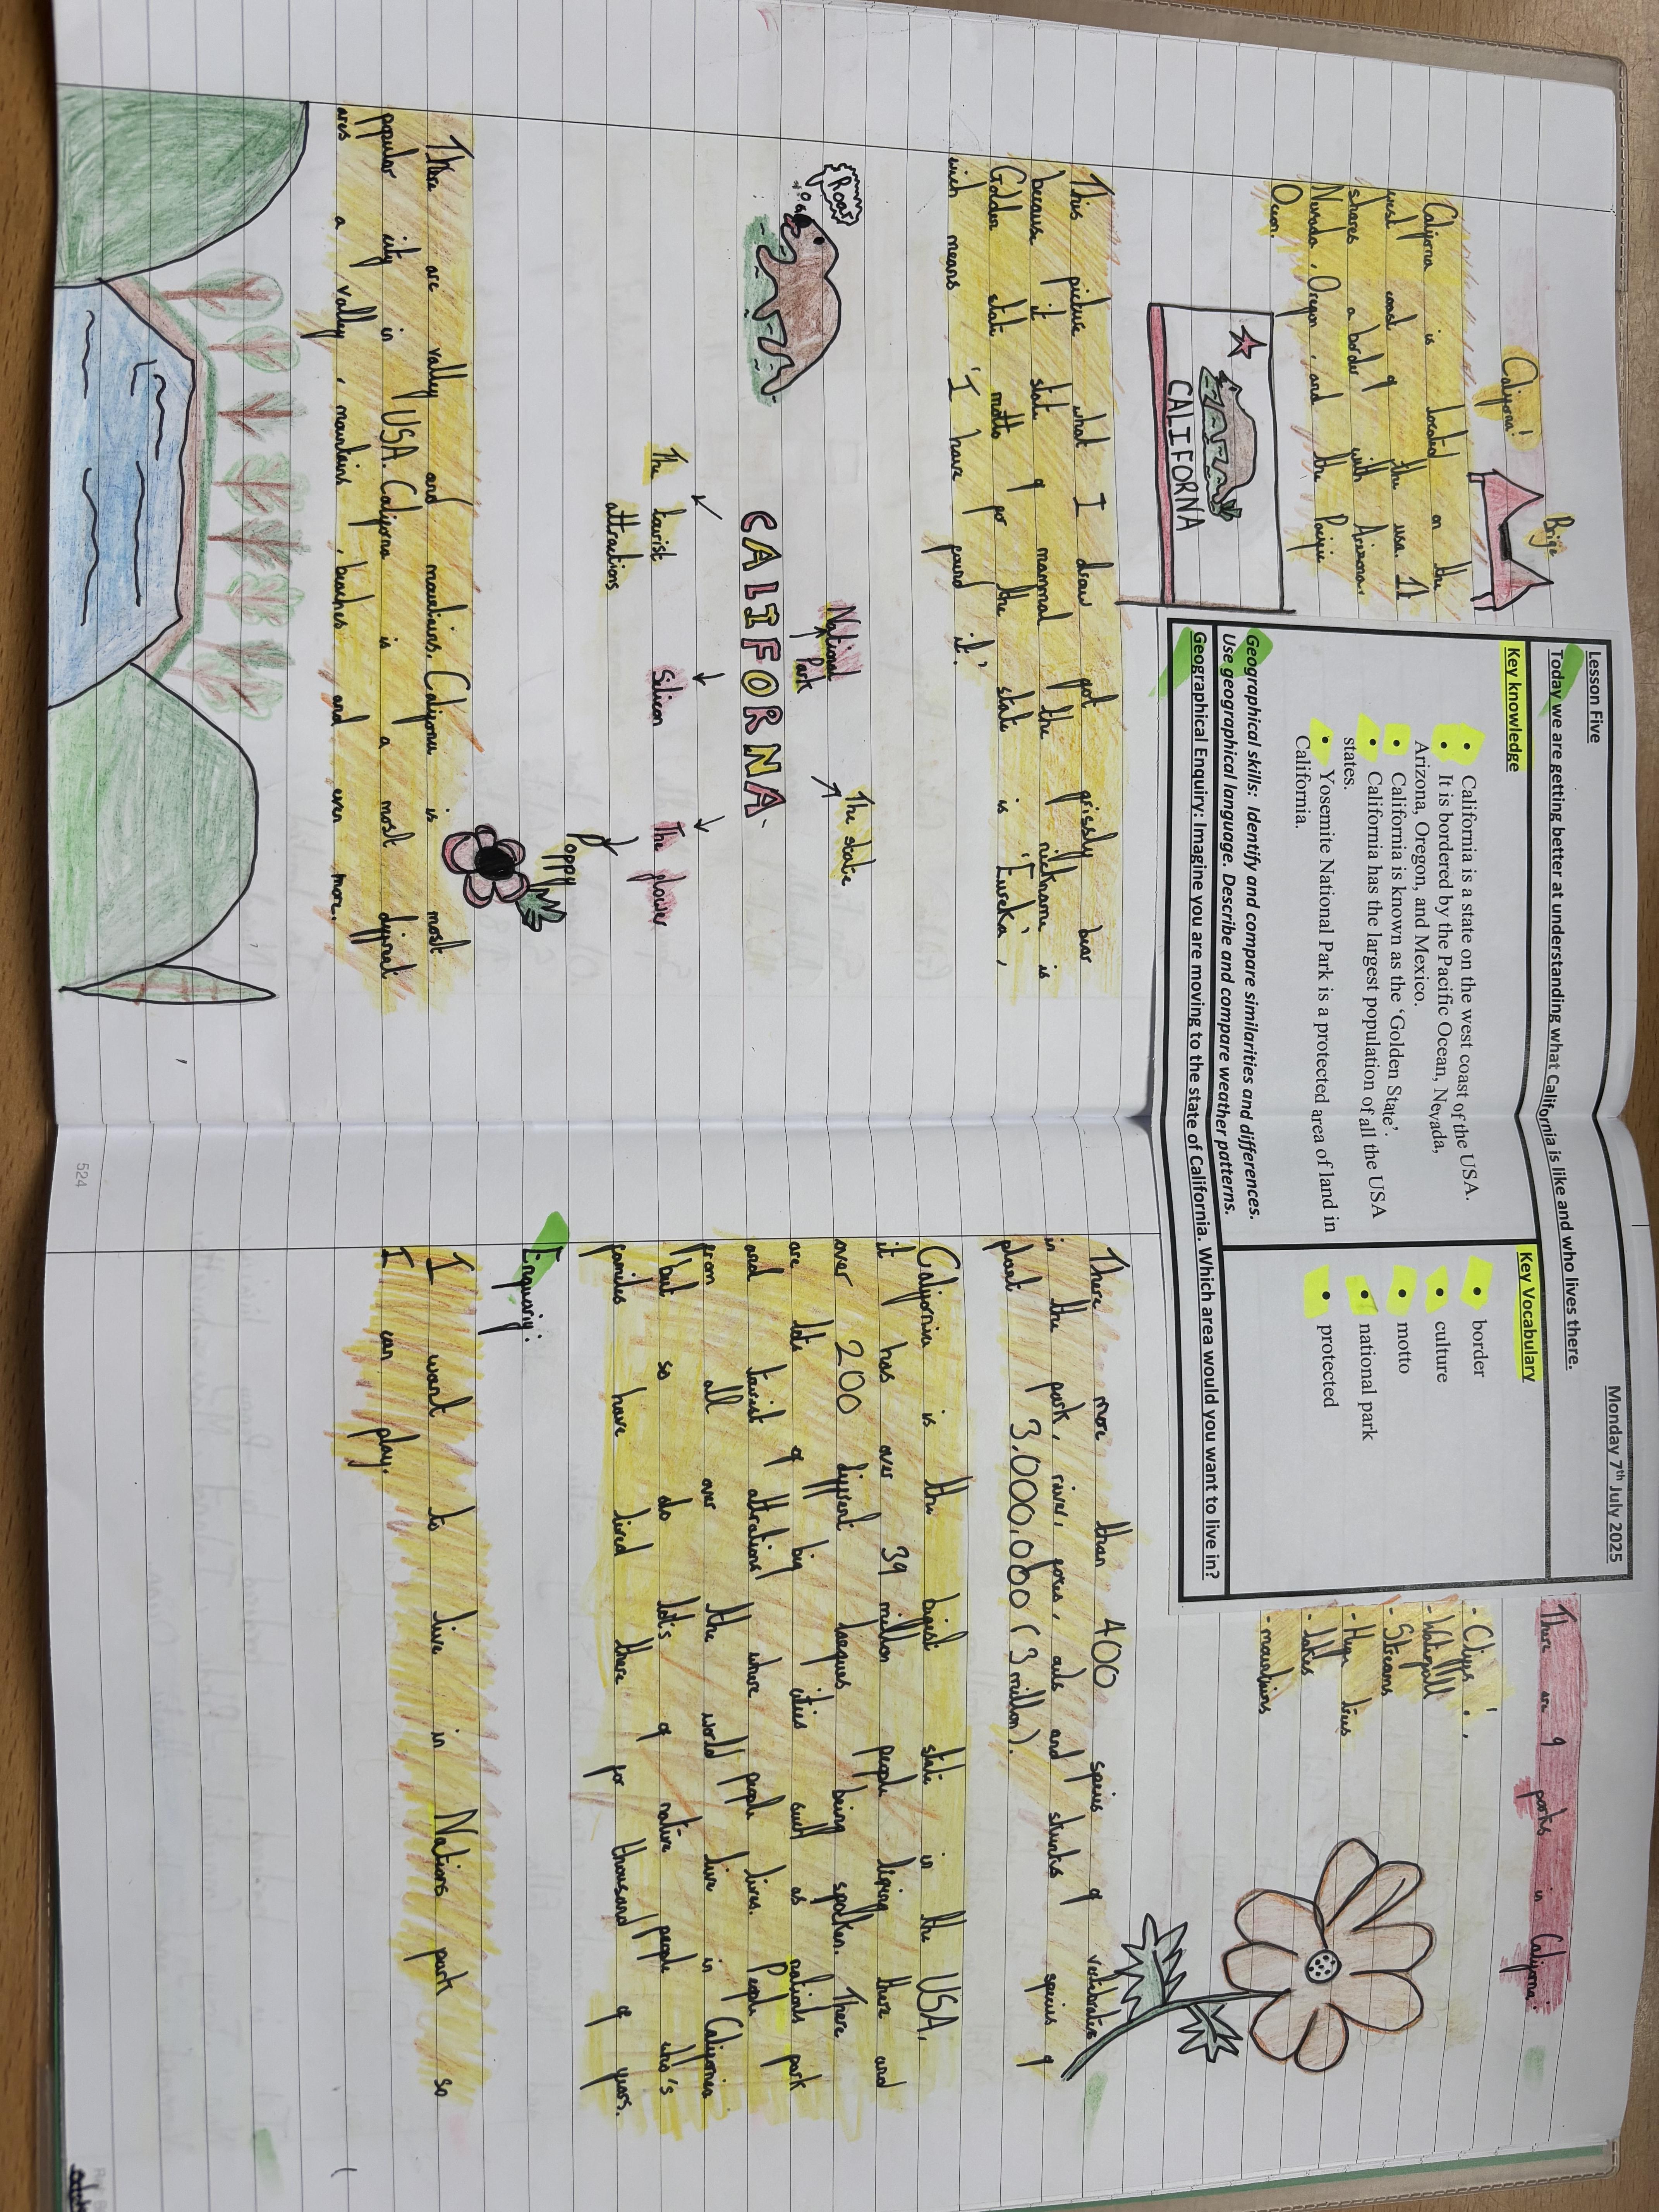 Monday 7th July 2025
Lesson Five
Today we are getting better at understanding what California is like and who lives there.
Key knowledge
California is a state on the west coast of the USA.
It is bordered by the Pacific Ocean, Nevada,
Arizona, Oregon, and Mexico.
California is known as the ‘Golden State’.
California has the largest population of all the USA
states.
Yosemite National Park is a protected area of land in
California.
Key Vocabulary
border
culture
motto
national park
protected
Geographical skills: Identify and compare similarities and differences.
Use geographical language. Describe and compare weather patterns.
Geographical Enquiry: Imagine you are moving to the state of California. Which area would you want to live in?
Brige
Californa!
Californa is located on the
west coast of the usa. It
shares a border with Arizona,
Nevada, Oregon, and the Pacific
Ocen.
CALIFORNA
This picture what I draw got grissly bear
because it state mamal the nickname is
Golden state motto of for the state is 'Eureka',
wich means 'I have found it'.
Roar
National
Park
The state
CALIFORNA
The tourist
attractions
Silicon
The flower
Poppy
There are vally and mountains. Californa is most
popular city in USA. Californa is a most diffrent
ares a valley, mountains, beaches and even more.
There are 9 parks in Californa.
- Clifs
- Waterfall
- Streams
- Huge trees
- lakes
- mountains
There more than 400 speius of vertebrates
in the park, river, foxes, owls and skunks speius of
plant 3.000.000 (3 millon).
California is the bigest state in the USA,
it has over 39 million people living there and
over 200 diffrent laegues being spocken. There
are lots of big cities such as nationls park
and tourist attrations where people lives. People
from all over the world live in California
but so do lot's of native people who's
familes have lived there for thousand of years.
Enquariy:
I want to live in Nations park so
I can play.
524